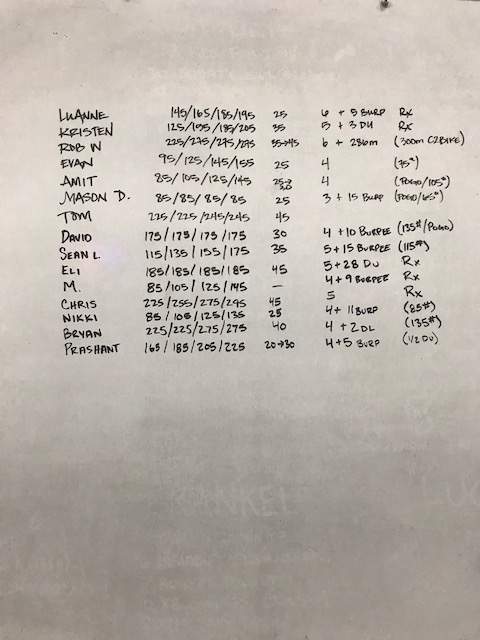 LUANNE 145/165/185/195 25 6 + 5 BURP Rx
KRISTEN 125/155/185/205 35 5 + 3 DU Rx
ROB W 225/275/275/295 35→45 6 + 286m (300m C2BIKE)
EVAN 95/125/145/155 25 4 (75#)
AMIT 85/105/125/145 25→30 4 (POGO/105#)
MASON D. 85/85/85/85 25 3 + 15 BURP (POGO/65#)
TOM 225/225/245/245 45
DAVID 175/175/175/175 30 4 + 10 BURPEE (135#/POGO)
SEAN L. 115/135/155/175 35 5 + 15 BURPEE (115#)
ELI 185/185/185/185 45 5 + 28 DU Rx
M. 85/105/125/145 — 4 + 9 BURPEE Rx
CHRIS 225/255/275/295 45 5 Rx
NIKKI 85/105/125/135 25 4 + 11 BURP (85#)
BRYAN 225/225/275/275 40 4 + 2 DL (135#)
PRASHANT 165/185/205/225 20→30 4 + 5 BURP (1/2 DU)